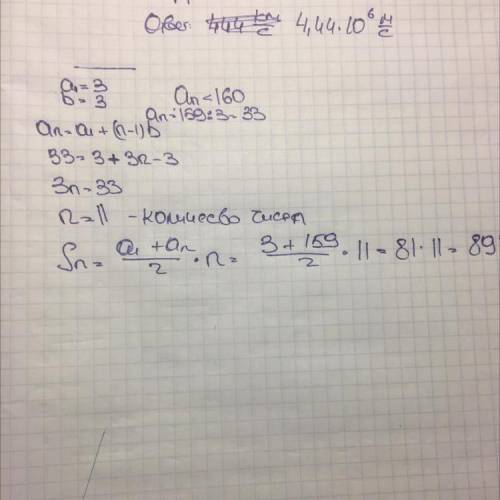 Ответ: 444 км/с 4,44·10⁶ м/с
a₁ = 3
b = 3 aₙ < 160
aₙ = 159:3 = 33
aₙ = a₁ + (n-1)b
33 = 3 + 3n - 3
3n = 33
n = 11 - количесво чисел
Sₙ = (a₁ + aₙ)/2 · n = (3 + 159)/2 · 11 = 81 · 11 = 89